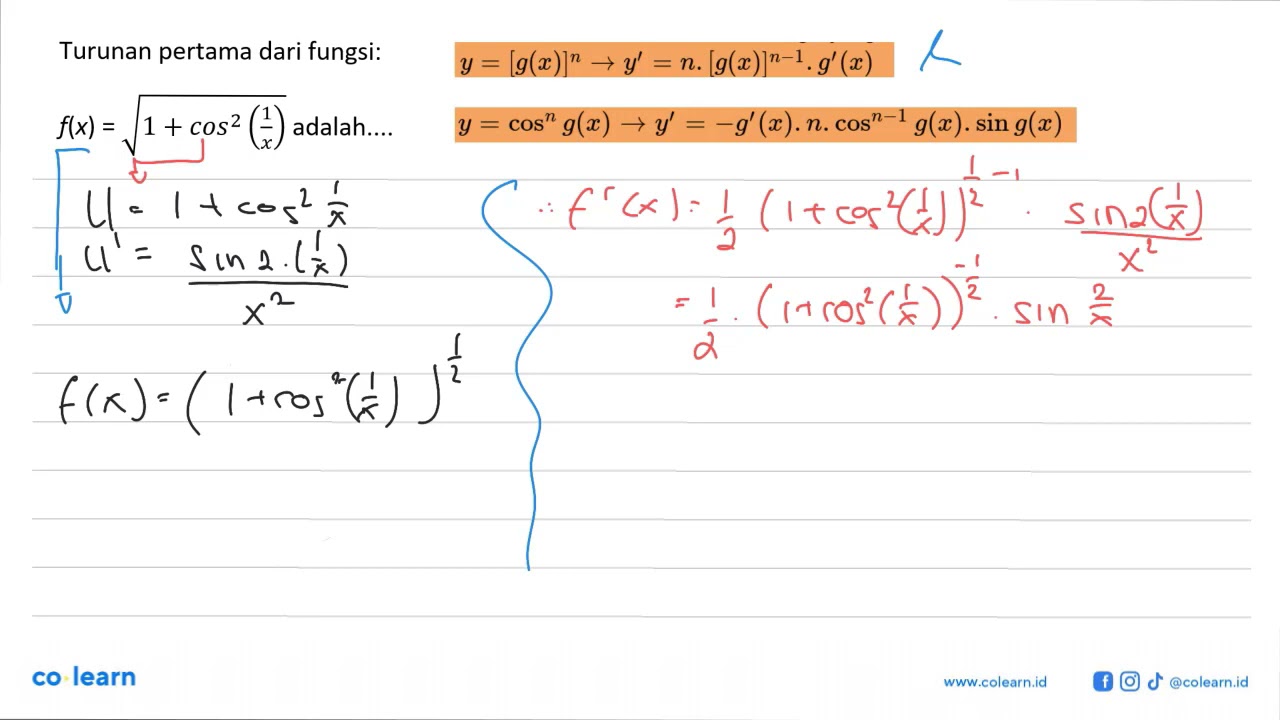 Turunan pertama dari fungsi:
f(x) = √(1 + cos² (1/x)) adalah....
y = [g(x)]ⁿ → y′ = n. [g(x)]ⁿ⁻¹. g′(x)
y = cosⁿ g(x) → y′ = −g′(x). n. cosⁿ⁻¹ g(x). sin g(x)
u = 1 + cos² 1/x
u' = sin 2.(1/x) / x²
f(x) = (1 + cos²(1/x))^(1/2)
∴ f'(x) = 1/2 (1 + cos²(1/x))^(1/2 − 1) · sin 2(1/x) / x²
= 1/2 · (1 + cos²(1/x))^(−1/2) · sin 2/x
co·learn
www.colearn.id
@colearn.id